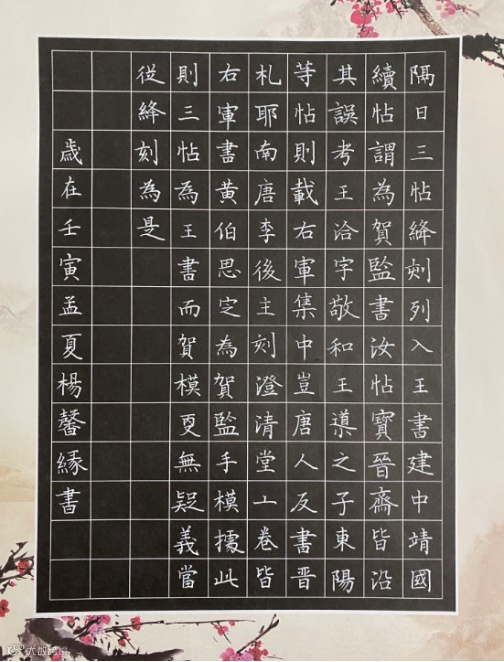 隔日三帖絳刻列入王書建中靖國
續帖謂為賀監書汝帖寶晉齋皆沿
其誤考王洽字敬和王導之子東陽
等帖則載右軍集中豈唐人反書晋
札耶南唐李後主刻澄清堂一卷皆
右軍書黃伯思定為賀監手模據此
則三帖為王書而賀模更無疑義當
從絳刻為是
歲在壬寅孟夏楊馨緣書
大邳跨境